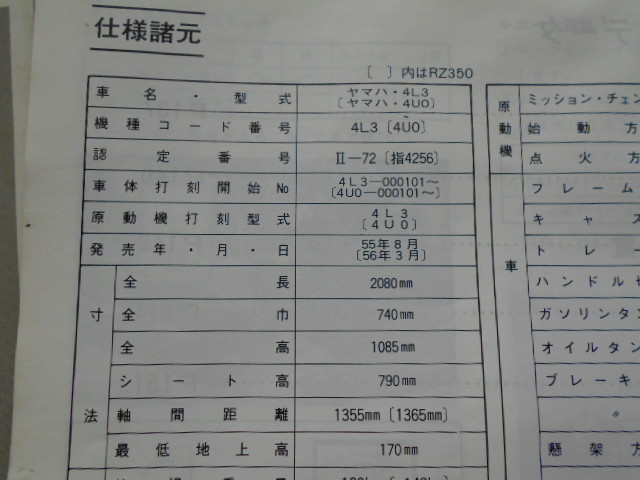 仕様諸元
〔 〕内はRZ350
車名・型式 ヤマハ・4L3
〔ヤマハ・4U0〕
機種コード番号 4L3〔4U0〕
認定番号 II−72〔指4256〕
車体打刻開始No 4L3−000101〜
〔4U0−000101〜〕
原動機打刻型式 4L3
〔4U0〕
発売年・月・日 55年8月
〔56年3月〕
寸法
全長 2080mm
全巾 740mm
全高 1085mm
シート高 790mm
軸間距離 1355mm〔1365mm〕
最低地上高 170mm
原動機
ミッション・チェン
始動方
点火方
車
フレーム
キャス
トレー
ハンドル
ガソリンタン
オイルタン
ブレーキ
〃
懸架方